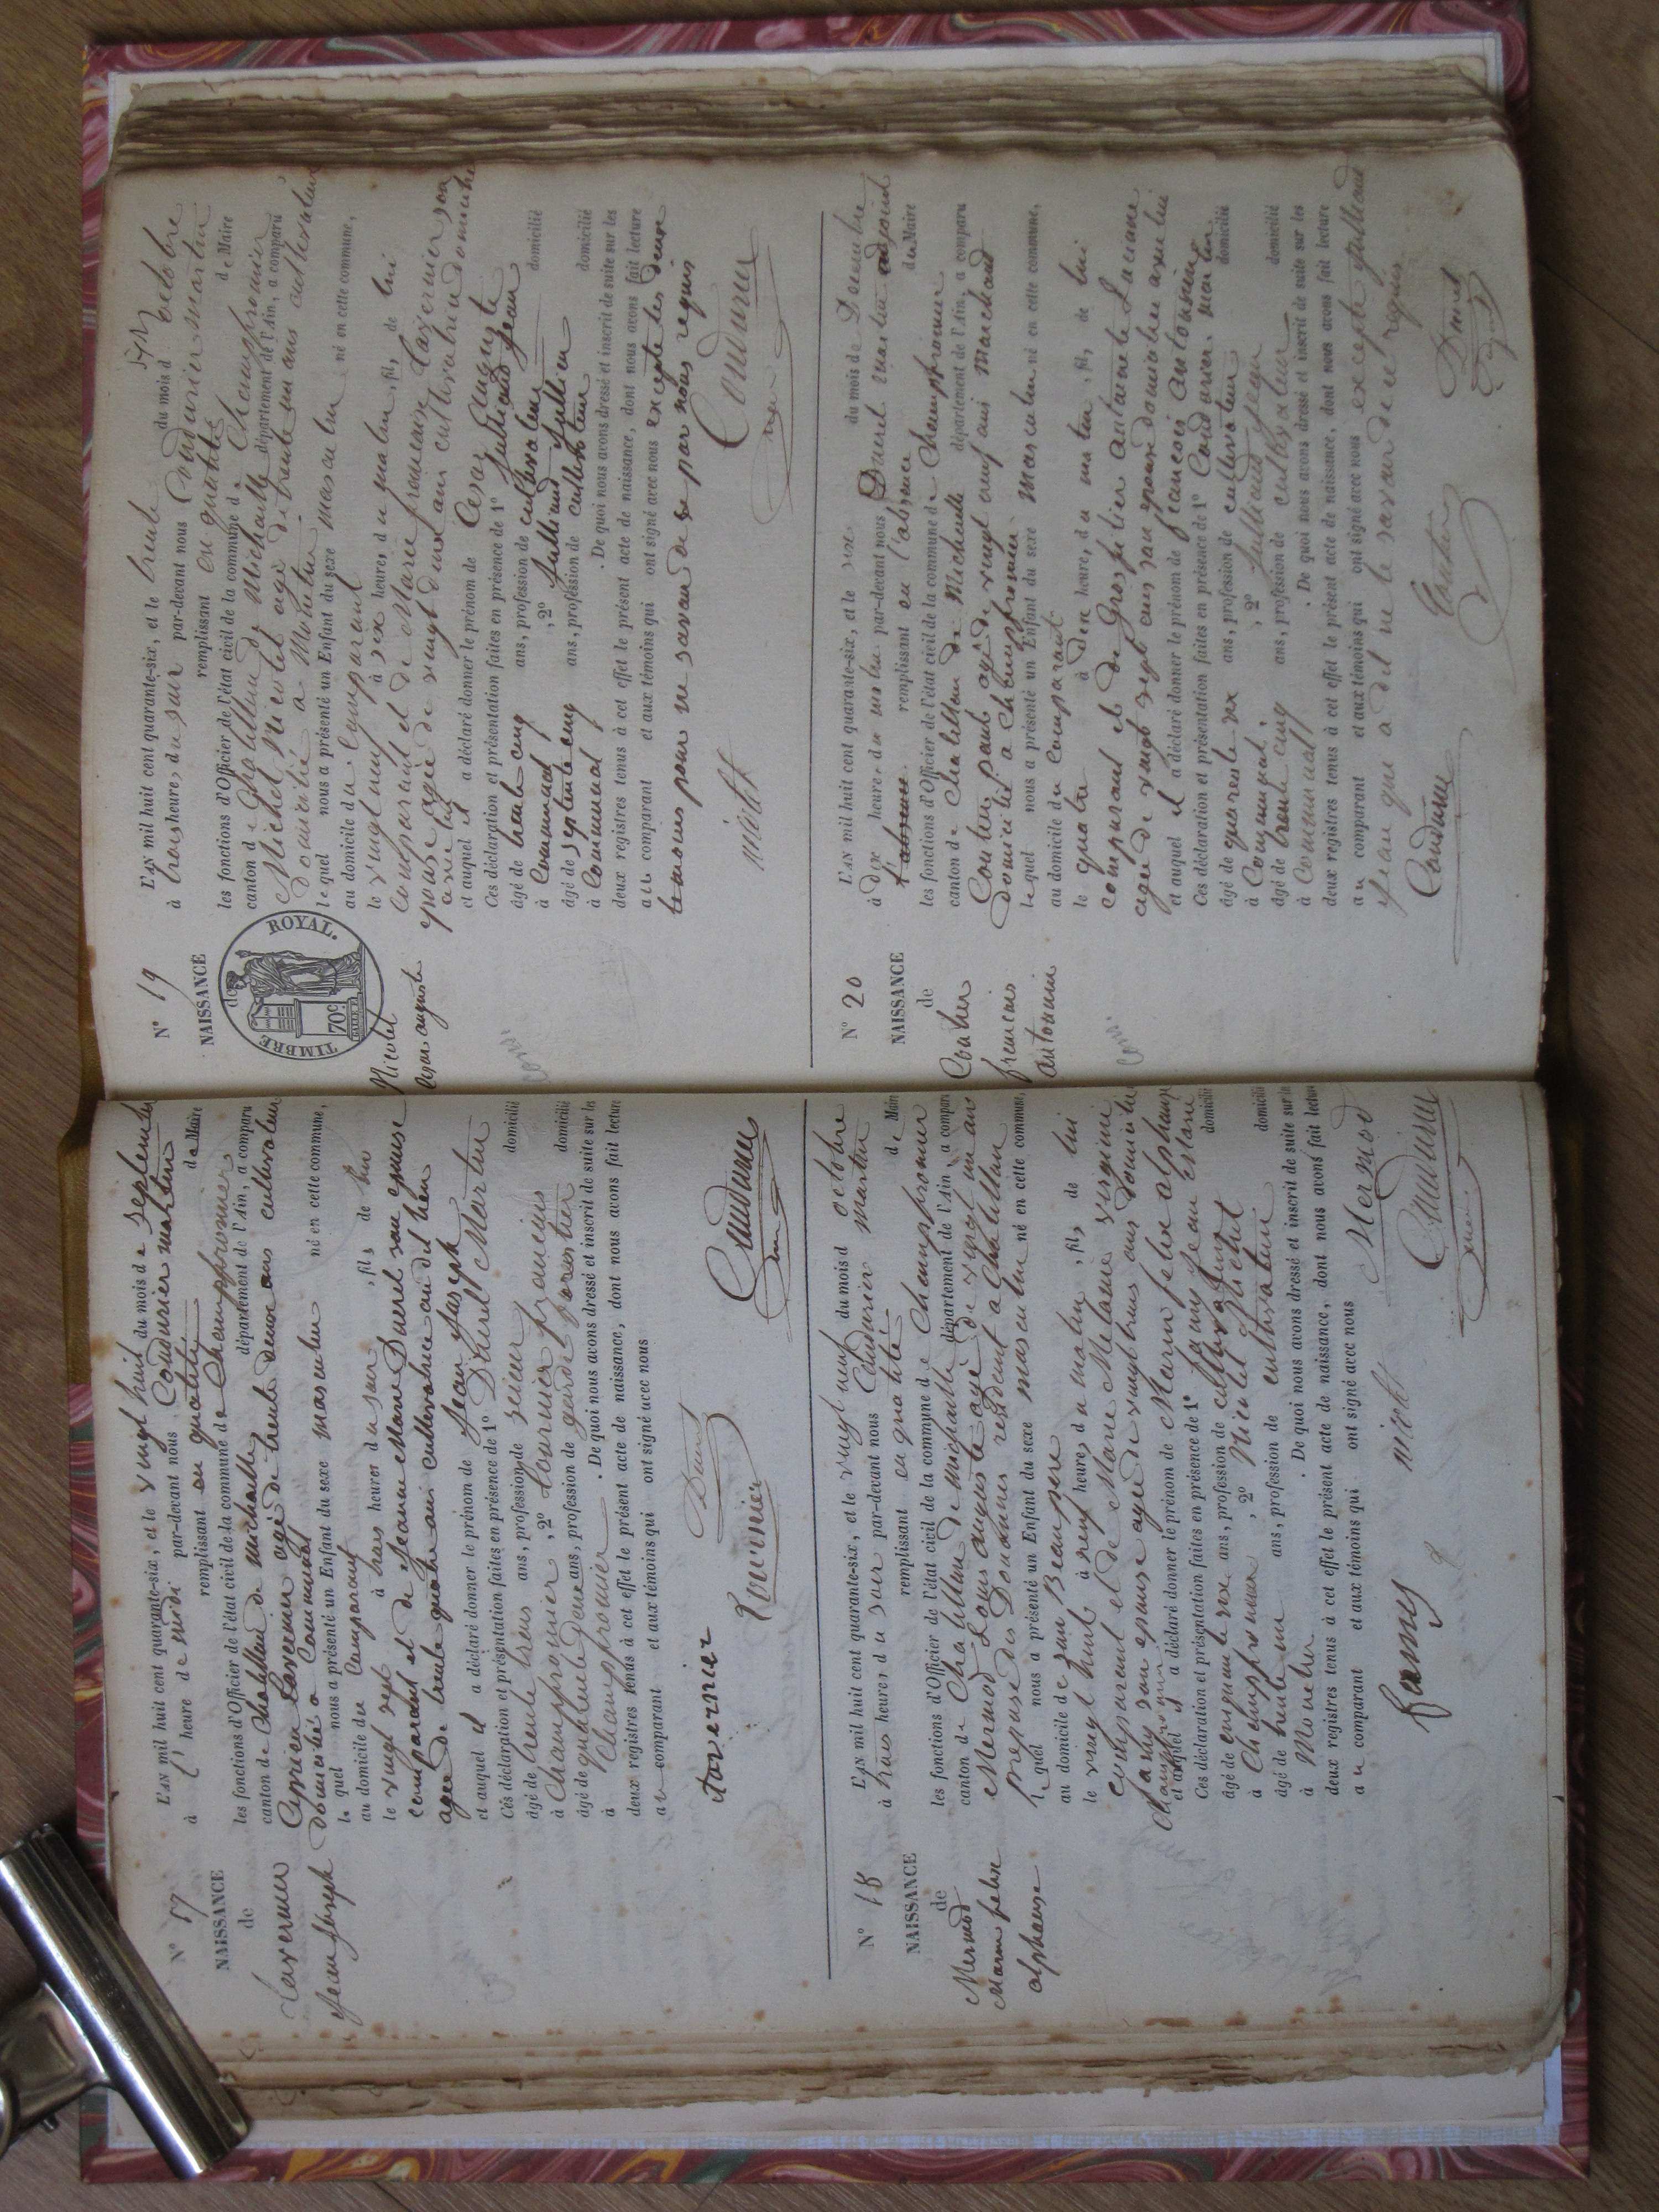 N° 17
NAISSANCE
de
Tavernier
Jean Joseph
L'AN mil huit cent quarante-six, et le vingt huit du mois de septembre
à l' heure de midi par-devant nous Coudurier martin
remplissant en qualité de Maire
les fonctions d'Officier de l'état civil de la commune de Champfromier
canton de Chatillon de michaille département de l'Ain, a comparu
Cyprien Tavernier agé de trente deux ans cultivateur
Domicilié a Communal
lequel nous a présenté un Enfant du sexe masculin né en cette commune,
au domicile du Comparant
le vingt sept à trois heures du soir , fils de lui
comparant et de Jeanne Marie Ducret son epouse
agee de trente quatre ans cultivatrice audit lieu
et auquel il a déclaré donner le prénom de Jean Joseph
Ces déclaration et présentation faites en présence de 1° Ducret Martin
âgé de trente trois ans, profession de domicilié
à Champfromier , 2° Tournier francois
âgé de quarante deux ans, profession de garde forestier domicilié
à Champfromier . De quoi nous avons dressé et inscrit de suite sur les
deux registres tenus à cet effet le présent acte de naissance, dont nous avons fait lecture
au comparant et aux témoins qui ont signé avec nous
tavernier Tournier Ducret Coudurier
N° 18
NAISSANCE
de
Mermod
Marin felix
alphonse
L'AN mil huit cent quarante-six, et le vingt neuf du mois d octobre
à trois heures du soir par-devant nous Coudurier martin
remplissant en qualité de Maire
les fonctions d'Officier de l'état civil de la commune de Champfromier
canton de Chatillon de michaille département de l'Ain, a comparu
Mermod Louis auguste agé de vingt un ans
préposé des Douanes résident a Chatillon
lequel nous a présenté un Enfant du sexe masculin né en cette commune,
au domicile de son Beaupere
le vingt huit à neuf heures du matin , fils de lui
comparant et de Marie Melanie virginie
famy son epouse agee de vingt trois ans domicilié
Champfromier
et auquel il a déclaré donner le prénom de Marin felix alphonse
Ces déclaration et présentation faites en présence de 1° famy Jean
âgé de cinquante six ans, profession de cultivateur domicilié
à Champfromier , 2° Nicolet Michel
âgé de trente un ans, profession de cultivateur domicilié
à Monetier . De quoi nous avons dressé et inscrit de suite sur les
deux registres tenus à cet effet le présent acte de naissance, dont nous avons fait lecture
au comparant et aux témoins qui ont signé avec nous
famy nicolet Mermod
Coudurier
N° 19
NAISSANCE
de
TIMBRE ROYAL.
70c
Nicolet
Cesar auguste
L'AN mil huit cent quarante-six, et le trente du mois d octobre
à trois heures du soir par-devant nous Coudurier martin
remplissant en qualité de Maire
les fonctions d'Officier de l'état civil de la commune de Champfromier
canton de Chatillon de Michaille département de l'Ain, a comparu
Michel Nicolet agé de trente un ans cultivateur
domicilié a Monetier
lequel nous a présenté un Enfant du sexe masculin né en cette commune,
au domicile du Comparant
le vingt neuf à six heures du matin , fils, de lui
Comparant et de Marie francoise Tavernier son
epouse agee de vingt deux ans cultivatrice domicilié
avec lui
et auquel il a déclaré donner le prénom de Cesar Auguste
Ces déclaration et présentation faites en présence de 1° Julliand Jean
âgé de trente cinq ans, profession de cultivateur domicilié
à Communal , 2° Julliand Jullien
âgé de septante cinq ans, profession de cultivateur domicilié
à Communal . De quoi nous avons dressé et inscrit de suite sur les
deux registres tenus à cet effet le présent acte de naissance, dont nous avons fait lecture
au comparant et aux témoins qui ont signé avec nous excepté les deux
temoins pour ne savoir de ce par nous requis
nicolet Coudurier
N° 20
NAISSANCE
de
Coutier
francois
antonin
L'AN mil huit cent quarante-six, et le six du mois de Decembre
à dix heures du matin par-devant nous Ducret martin adjoint
l'absence remplissant en l'absence du Maire
les fonctions d'Officier de l'état civil de la commune de Champfromier
canton de Chatillon de Michaille département de l'Ain, a comparu
Coutier paul agé de vingt neuf ans Marchand
Domicilié a Champfromier
lequel nous a présenté un Enfant du sexe Masculin né en cette commune,
au domicile du Comparant
le quatre à dix heures, du matin , fils, de lui
comparant et de Grospelier antoinette
agée de vingt sept ans son epouse domiciliée avec lui
et auquel il a déclaré donner le prénom de francois antonin
Ces déclaration et présentation faites en présence de 1° Coudurier martin
âgé de quarante six ans, profession de cultivateur domicilié
à Communal , 2° Julliand Jean
âgé de trente cinq ans, profession de cultivateur domicilié
à Communal . De quoi nous avons dressé et inscrit de suite sur les
deux registres tenus à cet effet le présent acte de naissance, dont nous avons fait lecture
au comparant et aux témoins qui ont signé avec nous excepté Julliand
Jean qui a dit ne le savoir de ce requis
Coudurier Coutier Ducret